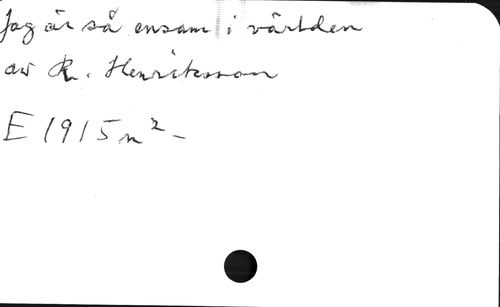 Jag är så ensam i världen
av R. Henriksson
E 1915 n² -